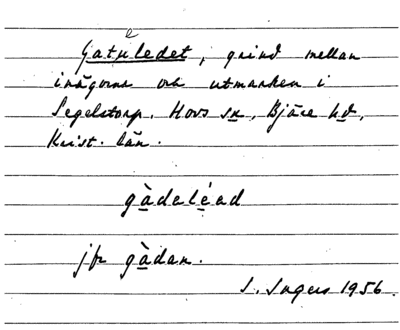 Gatuledet, grind mellan
inägorna och utmarken i
Segelstorp. Hovs sn, Bjäre hd,
Krist. län.
gàdeléad
jfr gàdan.
S. Ingers 1956.